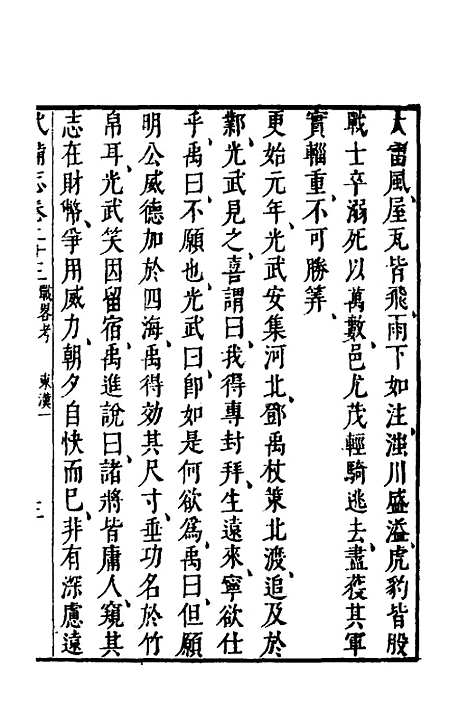 大雷風屋瓦皆飛雨下如注滍川盛溢虎豹皆股
戰士卒溺死以萬數邑尤茂輕騎逃去盡穫其軍
實輜重不可勝筭
更始元年光武安集河北鄧禹杖策北渡追及於
鄴光武見之喜謂曰我得專封拜生遠來寧欲仕
乎禹曰不願也光武曰卽如是何欲爲禹曰但願
明公威德加於四海禹得効其尺寸垂功名於竹
帛耳光武笑因留宿禹進說曰諸將皆庸人窺其
志在財幣爭用威力朝夕自快而已非有深慮遠
武備志卷二十三 戰畧考 東漢一 三